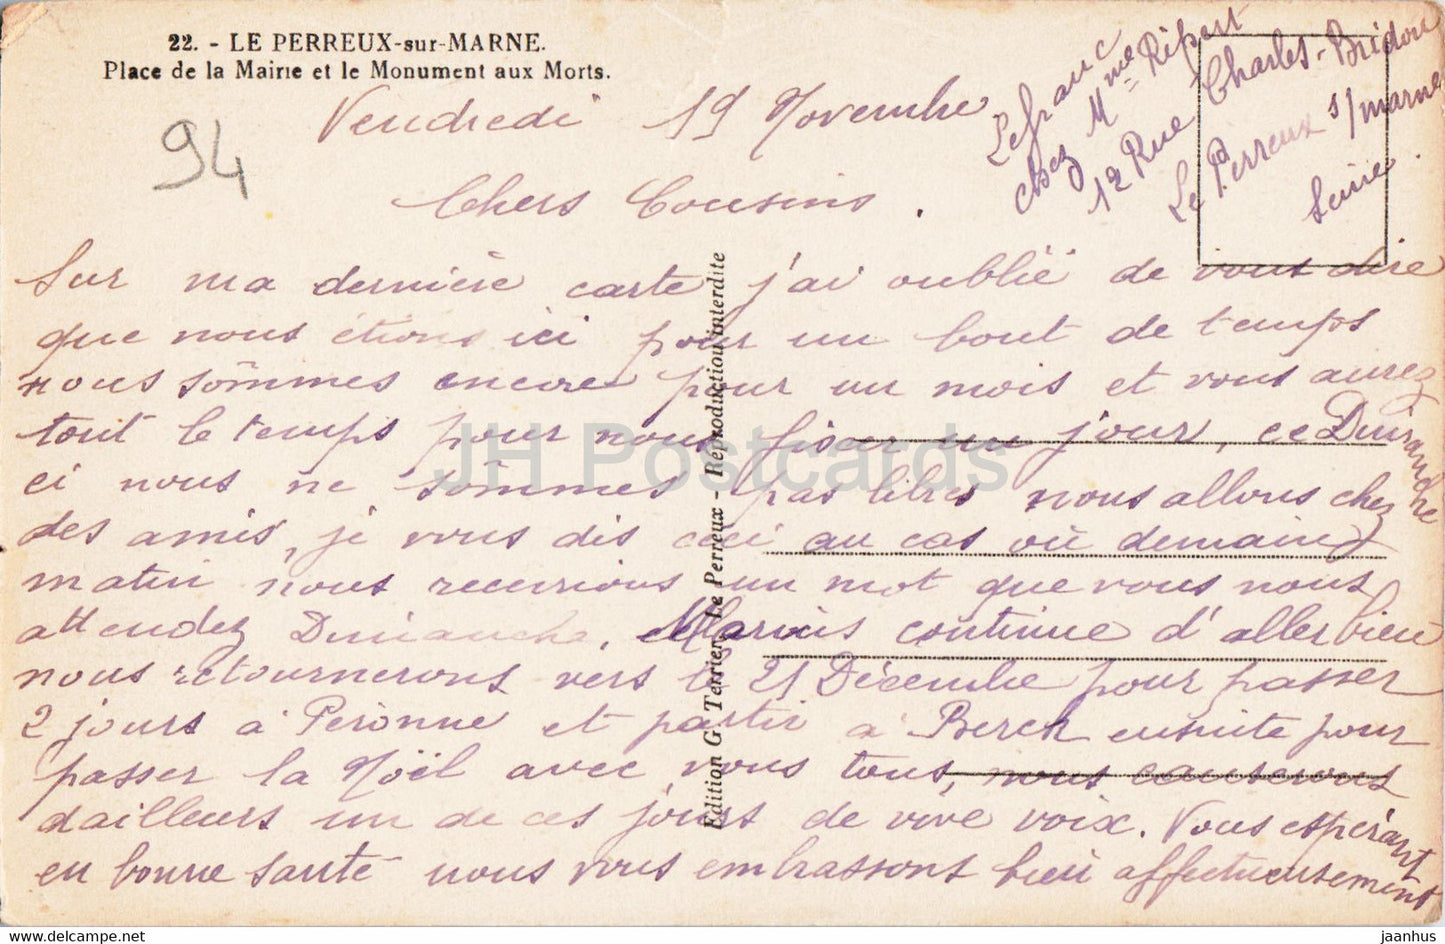 22. - LE PERREUX-sur-MARNE.
Place de la Mairie et le Monument aux Morts.
94
Lefranc
chez Mme Ripert
12 Rue Charles-Bridou
Le Perreux s/marne
Seine.
Vendredi 19 Novembre
Chers Cousins.
Sur ma dernière carte j'ai oublié de vous dire
que nous étions ici pour un bout de temps
nous sômmes encore pour un mois et vous aurez
tout le temps pour nous fixer un jour, ce Dimanche
ci nous ne sômmes pas libres nous allons chez
des amis, je vous dis ceci au cas où demain
matin nous recevrions un mot que vous nous
attendez Dimanche, continue d'aller bien
nous retournerons vers le 21 Décembre pour passer
2 jours à Peronne et partir à Berck ensuite pour
passer la Noël avec vous tous, nous causerons
dailleurs un de ces jours de vive voix. Vous espérant
en bonne santé nous vous embrassons bien affectueusement
Edition G. Terrier, Le Perreux - Reproduction interdite
JH Postcards
22. - LE PERREUX-sur-MARNE Place de la Mairie et le Monument aux Morts - old postcard